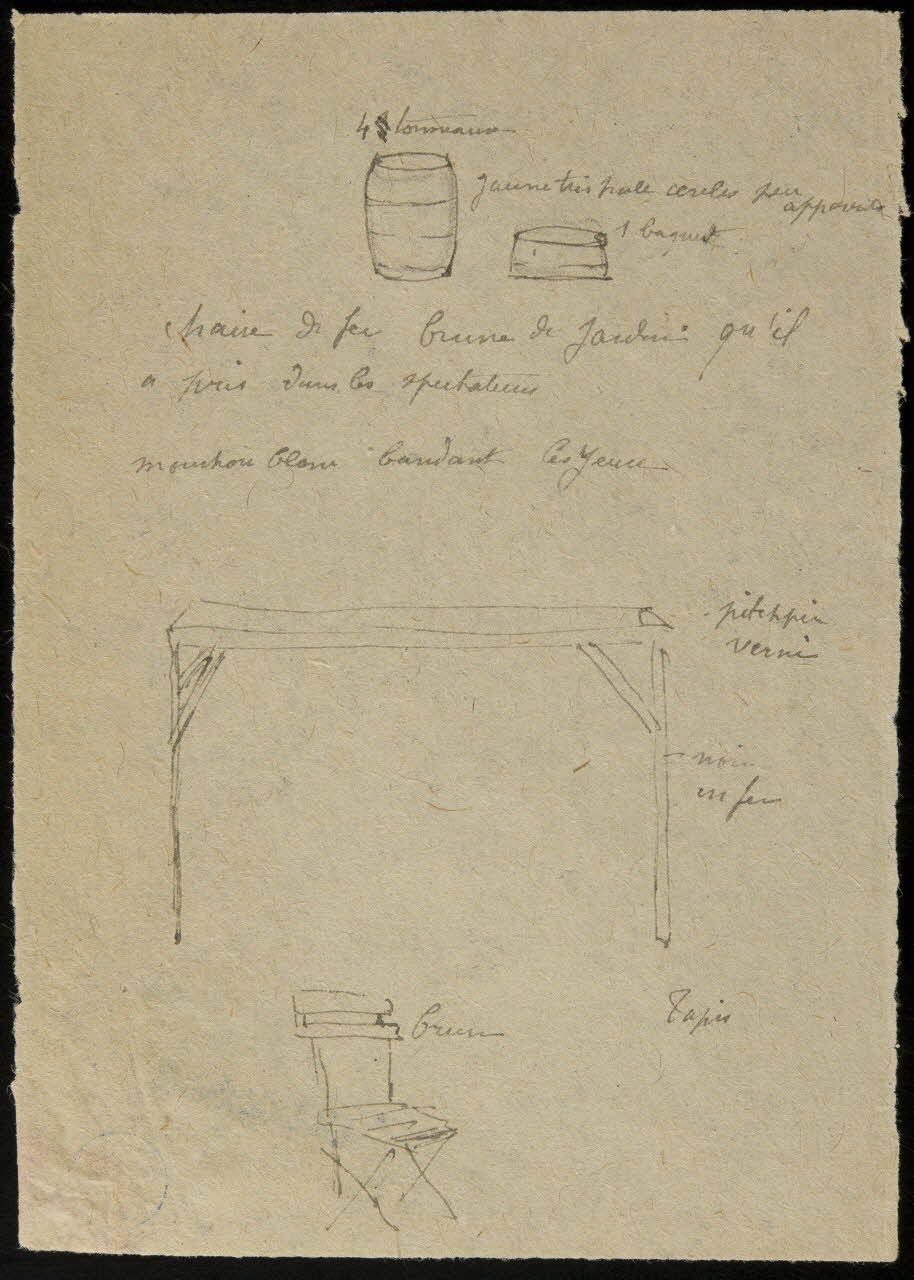 4 tonneaux
jaune très pale cercles peu
apparents
1 baquet
chaise de fer brune de jardin qu'il
a pris dans les spectateurs
mouchoir blanc bandant les yeux
pitchpin
verni
noir
en fer
brun
Tapis